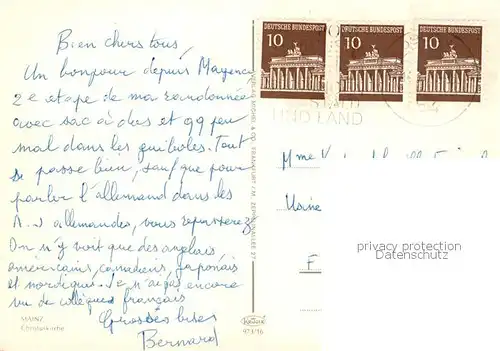 Bien chers tous,
Un bonjour depuis Mayence
2e etape de ma randonnée
avec sac à dos et qq peu
mal dans les guiboles. Tout
se passe bien, sauf que pour
parler l'allemand dans les
A.J allemandes, vous repasserez
On n'y voit que des anglais
américains, canadiens, japonais
et nordiques. Je n'ai pas encore
vu de collègues français
Grosses bises
Bernard
MAINZ
Christuskirche
971/16
DEUTSCHE BUNDESPOST
10
DEUTSCHE BUNDESPOST
10
DEUTSCHE BUNDESPOST
10
UND LAND
Mme
Usine
F
privacy protection
Datenschutz